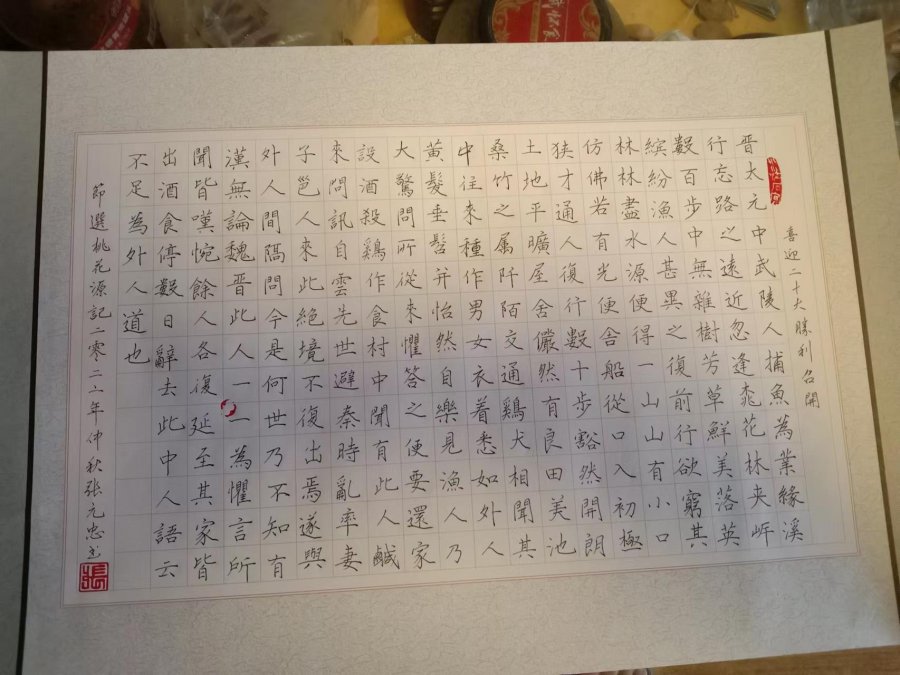 喜迎二十大勝利召開
晋太元中武陵人捕魚為業緣溪
行忘路之遠近忽逢桃花林夹岍
數百步中無雜樹芳草鮮美落英
繽紛漁人甚異之復前行欲窮其
林林盡水源便得一山山有小口
仿佛若有光便舍船從口入初極
狭才通人復行數十步豁然開朗
土地平曠屋舍儼然有良田美池
桑竹之属阡陌交通鷄犬相聞其
中往來種作男女衣着悉如外人
黄髮垂髫并怡然自樂見漁人乃
大驚問所從來懼答之便要還家
設酒殺鷄作食村中聞有此人鹹
來問訊自雲先世避秦時亂率妻
子邑人來此絕境不復出焉遂與
外人間隔問今是何世乃不知有
漢無論魏晋此人一一為懼言所
聞皆嘆惋餘人各復延至其家皆
出酒食停數日辭去此中人語云
不足為外人道也
節選桃花源記二零二二年仲秋張元忠书
張